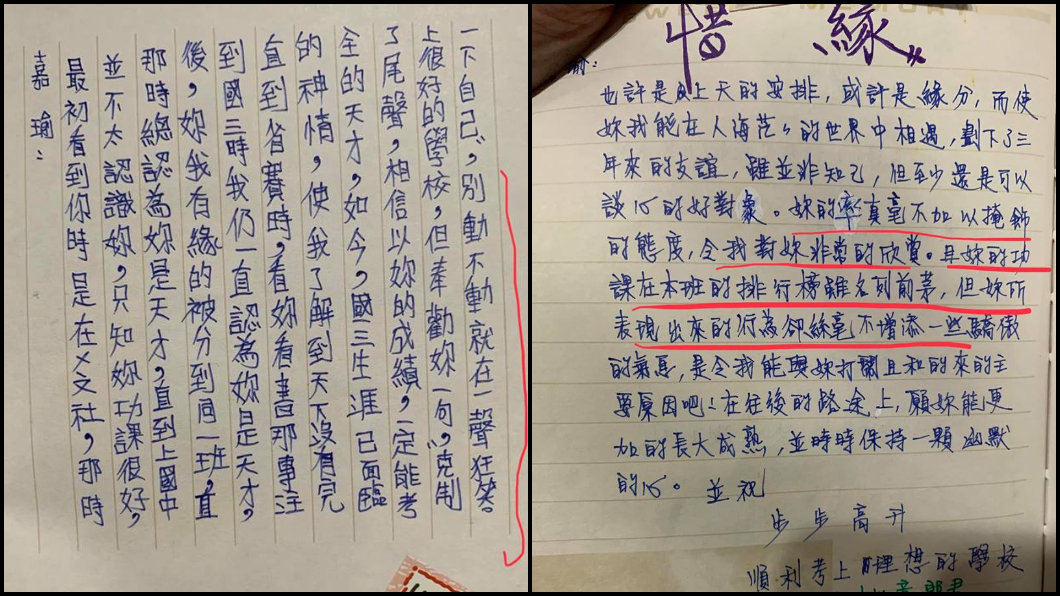 嘉瑜：
最初看到你時是在乂文社，那時
並不太認識妳，只知妳功課很好，
那時總認為妳是天才，直到上國中
後，妳我有緣的被分到同一班，直
到國三時我仍一直認為妳是天才，
直到省賽時，看妳看書那專注
的神情，使我了解到天下沒有完
全的天才，如今，國三生涯已面臨
了尾聲，相信以妳的成績，一定能考
上很好的學校，但奉勸妳一句，"克制
一下自己"，別動不動就在一聲狂笑。
惜緣
瑜：
也許是上天的安排，或許是緣分，而使
妳我能在人海茫茫的世界中相遇，劃下了三
年來的友誼，雖並非知己，但至少還是可以
談心的好對象。妳的率真毫不加以掩飾
的態度，令我對妳非常的欣賞。且妳的功
課在本班的排行榜雖名列前茅，但妳所
表現出來的行為卻絲毫不增添一些驕傲
的氣息，是令我能與妳打鬧且和的來的主
要原因吧！在往後的路途上，願妳能更
加的長大成熟，並時時保持一顆幽默
的心。 並祝
步步高升
順利考上理想的學校